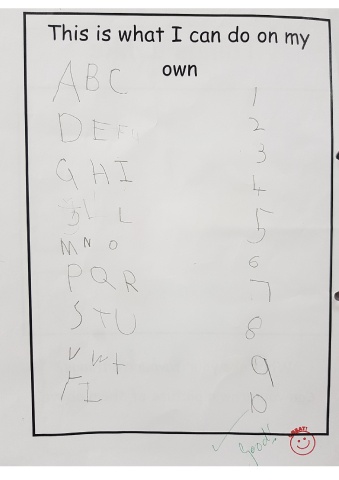 This is what I can do on my
own
A B C
D E F
G H I
J L
M N O
P Q R
S T U
V W X
Y I
1
2
3
4
5
6
7
8
9
10
Good!
GREAT!